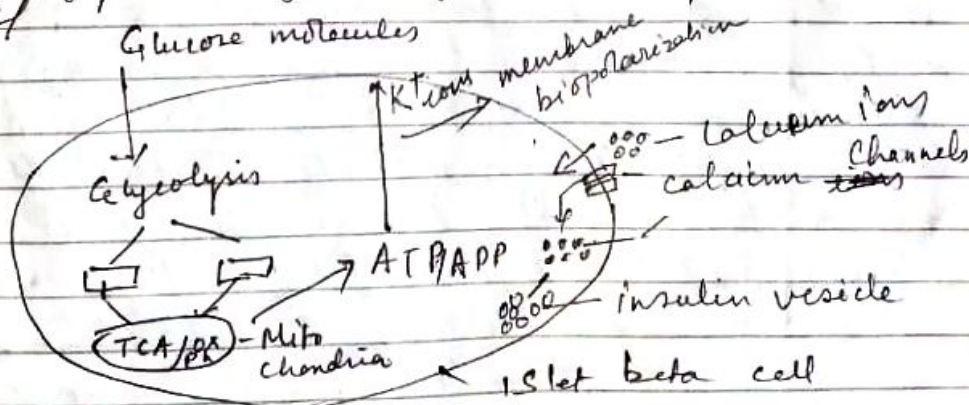 Glucose molecules
K+ ions membrane
biopolarization
Calcium ions
Calcium Channels
Glycolysis
ATP/ADP
insulin vesicle
TCA/ox ph - Mito
chondria
Islet beta cell